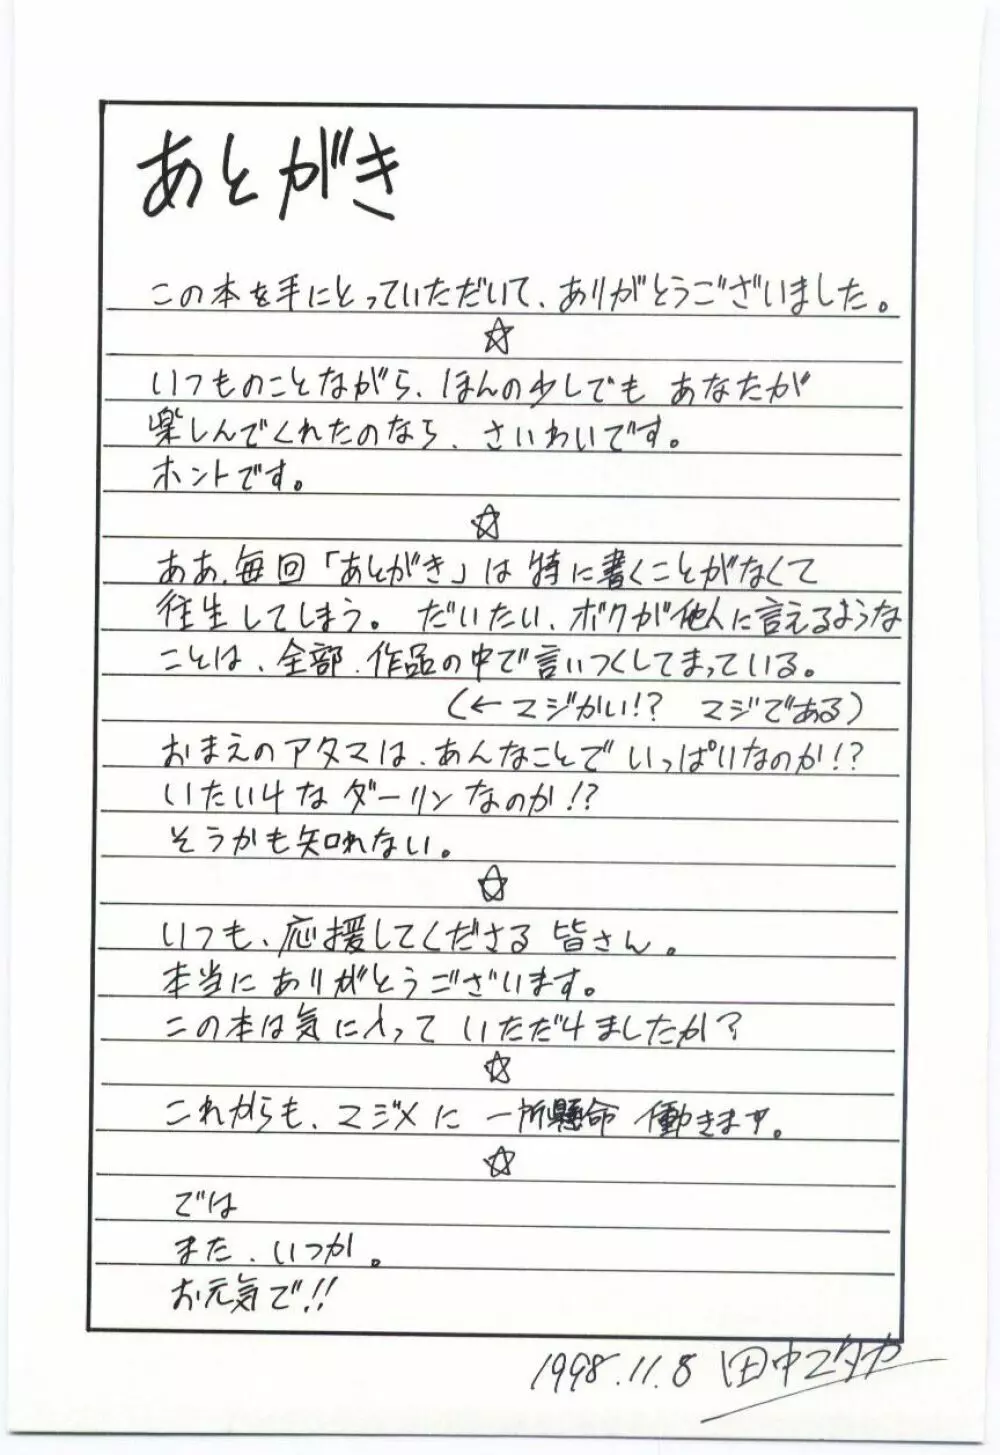 あとがき
この本を手にとっていただいて、ありがとうございました。
☆
いつものことながら、ほんの少しでも あなたが
楽しんでくれたのなら、さいわいです。
ホントです。
☆
ああ、毎回「あとがき」は 特に書くことがなくて
往生してしまう。だいたい、ボクが他人に言えるような
ことは、全部、作品の中で言いつくしてまっている。
(←マジかい!? マジである)
おまえのアタマは、あんなことで いっぱいなのか!?
いたいけなダーリンなのか!?
そうかも知れない。
☆
いつも、応援してくださる 皆さん。
本当に ありがとうございます。
この本は気に入って いただけましたか?
☆
これからも、マジメに 一所懸命 働きます。
☆
では
また、いつか。
お元気で!!
1998.11.8 田中ユタカ